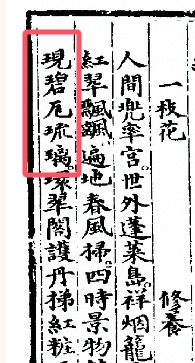 一枝花
修養
人間兜率宮。世外蓬萊島。祥烟籠
紅翠飄飄。遍地春風掃。四時景物
現碧瓦琉璃。環翠閣護丹梯紅粧